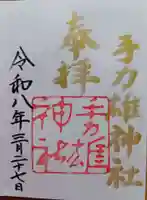 奉拝
手力雄神社
手力雄
神社
令和八年三月二十七日